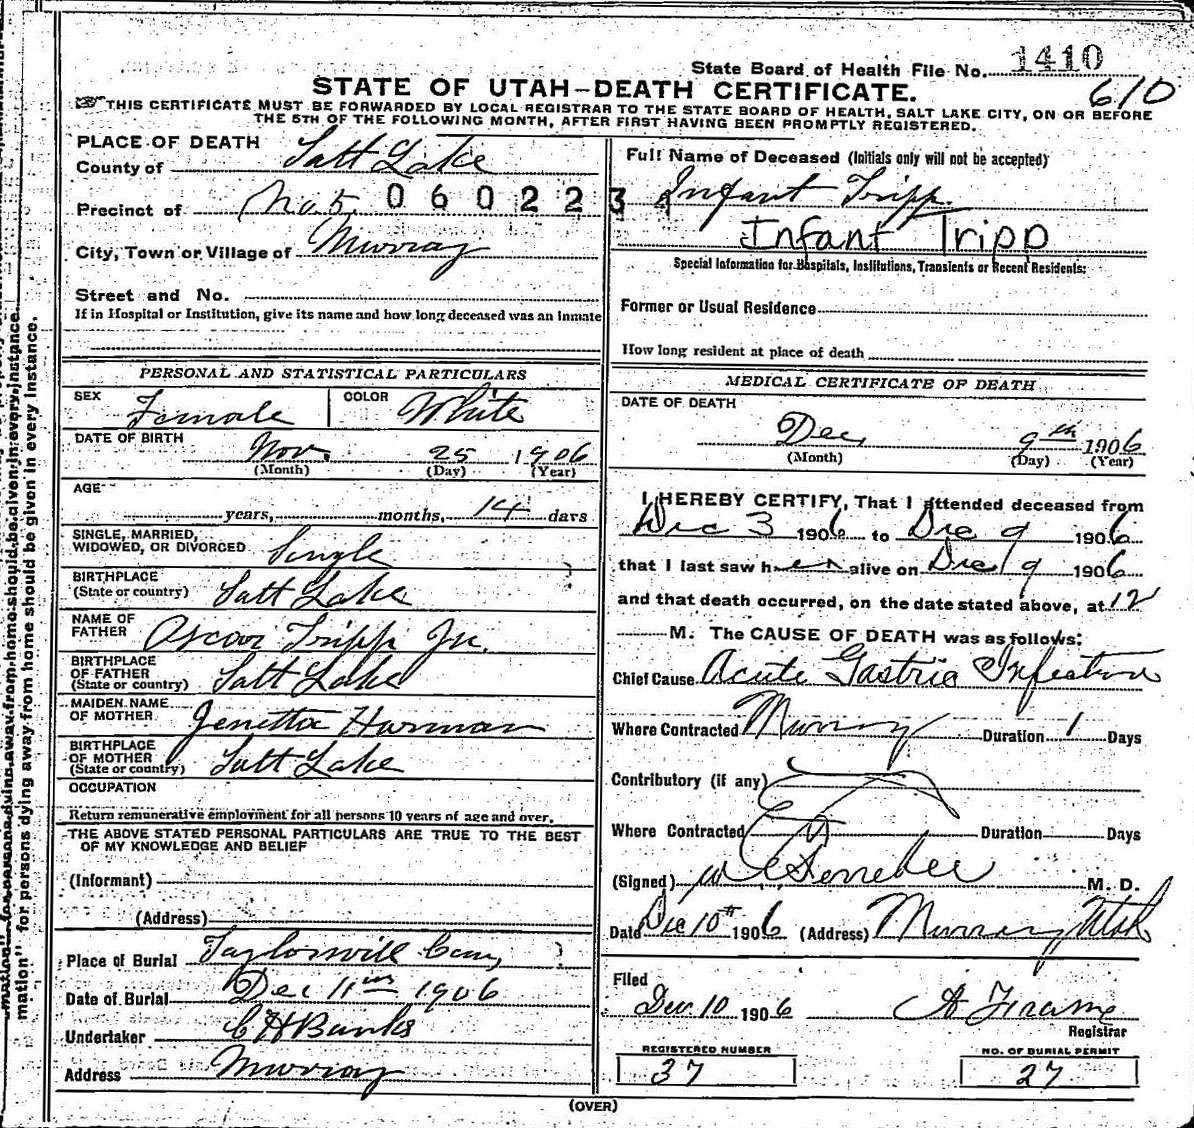 State Board of Health File No. 1410
610
STATE OF UTAH–DEATH CERTIFICATE.
THIS CERTIFICATE MUST BE FORWARDED BY LOCAL REGISTRAR TO THE STATE BOARD OF HEALTH, SALT LAKE CITY, ON OR BEFORE
THE 5TH OF THE FOLLOWING MONTH, AFTER FIRST HAVING BEEN PROMPTLY REGISTERED.
PLACE OF DEATH
County of Salt Lake
Precinct of No. 5. 060223
City, Town or Village of Murray
Street and No.
If in Hospital or Institution, give its name and how long deceased was an inmate
PERSONAL AND STATISTICAL PARTICULARS
SEX Female COLOR White
DATE OF BIRTH Nov. 25 1906
(Month) (Day) (Year)
AGE
years, months, 14 days
SINGLE, MARRIED,
WIDOWED, OR DIVORCED Single
BIRTHPLACE
(State or country) Salt Lake
NAME OF
FATHER Oscar Tripp Jr.
BIRTHPLACE
OF FATHER
(State or country) Salt Lake
MAIDEN NAME
OF MOTHER Jenetta Harman
BIRTHPLACE
OF MOTHER
(State or country) Salt Lake
OCCUPATION
Return remunerative employment for all persons 10 years of age and over.
THE ABOVE STATED PERSONAL PARTICULARS ARE TRUE TO THE BEST
OF MY KNOWLEDGE AND BELIEF
(Informant)
(Address)
Place of Burial Taylorsvill Cem,
Date of Burial Dec 11th 1906
Undertaker C H Banks
Address Murray
Full Name of Deceased (Initials only will not be accepted)
Infant Tripp.
Infant Tripp
Special Information for Hospitals, Institutions, Transients or Recent Residents:
Former or Usual Residence
How long resident at place of death
MEDICAL CERTIFICATE OF DEATH
DATE OF DEATH
Dec 9th 1906
(Month) (Day) (Year)
I HEREBY CERTIFY, That I attended deceased from
Dec 3 1906 to Dec 9 1906
that I last saw her alive on Dec 9 1906
and that death occurred, on the date stated above, at 12
M. The CAUSE OF DEATH was as follows:
Chief Cause Acute Gastric Infection
Where Contracted Murray Duration 1 Days
Contributory (if any)
Where Contracted Duration Days
(Signed) M. D.
Date Dec 10th 1906 (Address) Murray Utah
Filed
Dec. 10 1906 A Frame
Registrar
REGISTERED NUMBER
37
NO. OF BURIAL PERMIT
27
(OVER)
mation" for persons dying away from home should be given in every instance.